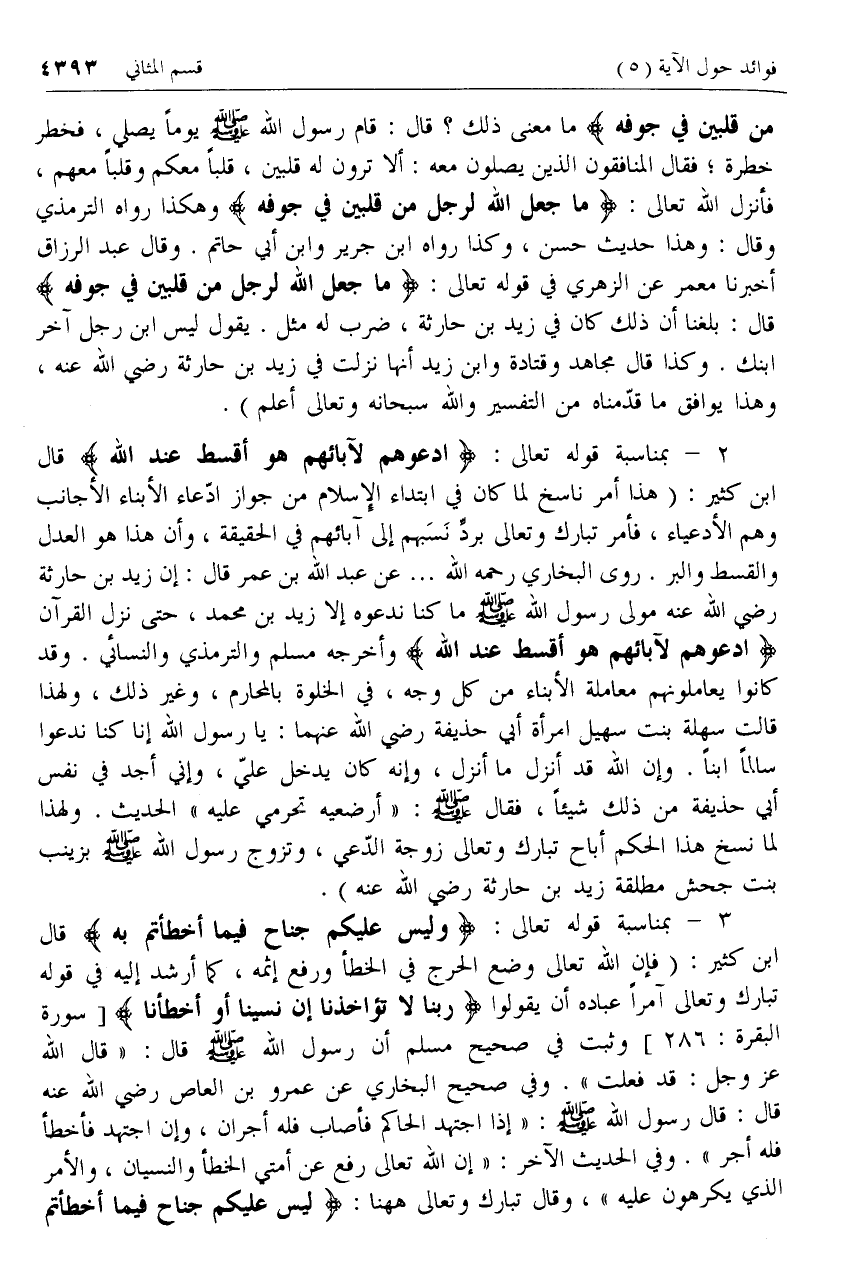 فوائد حول الآية (٥) قسم المثاني ٤٣٩٣
من قلبين في جوفه ﴾ ما معنى ذلك ؟ قال : قام رسول الله ﷺ يوماً يصلي ، فخطر
خطرة ؛ فقال المنافقون الذين يصلون معه : ألا ترون له قلبين ، قلباً معكم وقلباً معهم ،
فأنزل الله تعالى : ﴿ ما جعل الله لرجل من قلبين في جوفه ﴾ وهكذا رواه الترمذي
وقال : وهذا حديث حسن ، وكذا رواه ابن جرير وابن أبي حاتم . وقال عبد الرزاق
أخبرنا معمر عن الزهري في قوله تعالى : ﴿ ما جعل الله لرجل من قلبين في جوفه ﴾
قال : بلغنا أن ذلك كان في زيد بن حارثة ، ضرب له مثل . يقول ليس ابن رجل آخر
ابنك . وكذا قال مجاهد وقتادة وابن زيد أنها نزلت في زيد بن حارثة رضي الله عنه ،
وهذا يوافق ما قدّمناه من التفسير والله سبحانه وتعالى أعلم ) .
٢ – بمناسبة قوله تعالى : ﴿ ادعوهم لآبائهم هو أقسط عند الله ﴾ قال
ابن كثير : ( هذا أمر ناسخ لما كان في ابتداء الإسلام من جواز ادّعاء الأبناء الأجانب
وهم الأدعياء ، فأمر تبارك وتعالى بردِّ نَسَبهم إلى آبائهم في الحقيقة ، وأن هذا هو العدل
والقسط والبر . روى البخاري رحمه الله ... عن عبد الله بن عمر قال : إن زيد بن حارثة
رضي الله عنه مولى رسول الله ﷺ ما كنا ندعوه إلا زيد بن محمد ، حتى نزل القرآن
﴿ ادعوهم لآبائهم هو أقسط عند الله ﴾ وأخرجه مسلم والترمذي والنسائي . وقد
كانوا يعاملونهم معاملة الأبناء من كل وجه ، في الخلوة بالمحارم ، وغير ذلك ، ولهذا
قالت سهلة بنت سهيل امرأة أبي حذيفة رضي الله عنهما : يا رسول الله إنا كنا ندعوا
سالماً ابناً . وإن الله قد أنزل ما أنزل ، وإنه كان يدخل عليّ ، وإني أجد في نفس
أبي حذيفة من ذلك شيئاً ، فقال ﷺ : « أرضعيه تحرمي عليه » الحديث . ولهذا
لما نسخ هذا الحكم أباح تبارك وتعالى زوجة الدّعي ، وتزوج رسول الله ﷺ بزينب
بنت جحش مطلقة زيد بن حارثة رضي الله عنه ) .
٣ – بمناسبة قوله تعالى : ﴿ وليس عليكم جناح فيما أخطأتم به ﴾ قال
ابن كثير : ( فإن الله تعالى وضع الحرج في الخطأ ورفع إثمه ، كما أرشد إليه في قوله
تبارك وتعالى آمراً عباده أن يقولوا ﴿ ربنا لا تؤاخذنا إن نسينا أو أخطأنا ﴾ [ سورة
البقرة : ٢٨٦ ] وثبت في صحيح مسلم أن رسول الله ﷺ قال : « قال الله
عز وجل : قد فعلت » . وفي صحيح البخاري عن عمرو بن العاص رضي الله عنه
قال : قال رسول الله ﷺ : « إذا اجتهد الحاكم فأصاب فله أجران ، وإن اجتهد فأخطأ
فله أجر » . وفي الحديث الآخر : « إن الله تعالى رفع عن أمتي الخطأ والنسيان ، والأمر
الذي يكرهون عليه » ، وقال تبارك وتعالى ههنا : ﴿ ليس عليكم جناح فيما أخطأتم